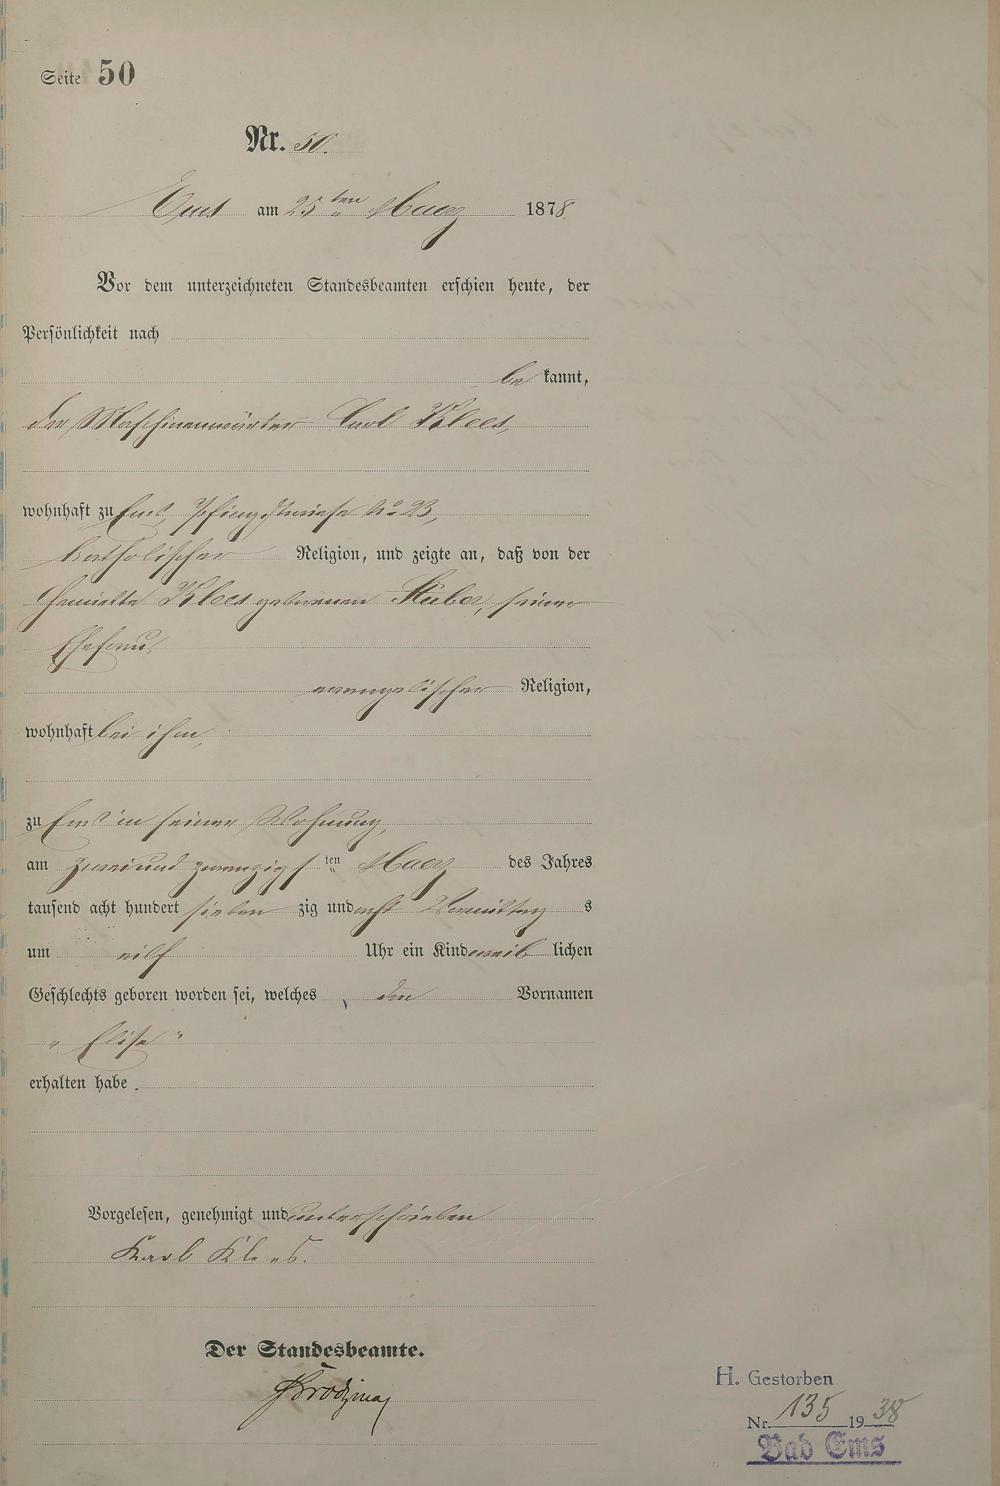 Seite 50
Nr. 50.
Ems am 25ten Maerz 1878
Vor dem unterzeichneten Standesbeamten erschien heute, der
Persönlichkeit nach
be kannt,
der Maschinenwärter Carl Klees,
wohnhaft zu Ems, Pfingstwiese No 23,
katholischer Religion, und zeigte an, daß von der
Henriette Klees geborenen Huber, seiner
Ehefrau,
evangelischer Religion,
wohnhaft bei ihm,
zu Ems in seiner Wohnung,
am zweiund zwanzigsten Maerz des Jahres
tausend acht hundert sieben zig und acht Vormittag s
um eilf Uhr ein Kind weib lichen
Geschlechts geboren worden sei, welches den Vornamen
„ Elise "
erhalten habe.
Vorgelesen, genehmigt und unterschrieben
Karl Klees.
Der Standesbeamte.
H. Gestorben
Nr. 135 1938
Bad Ems